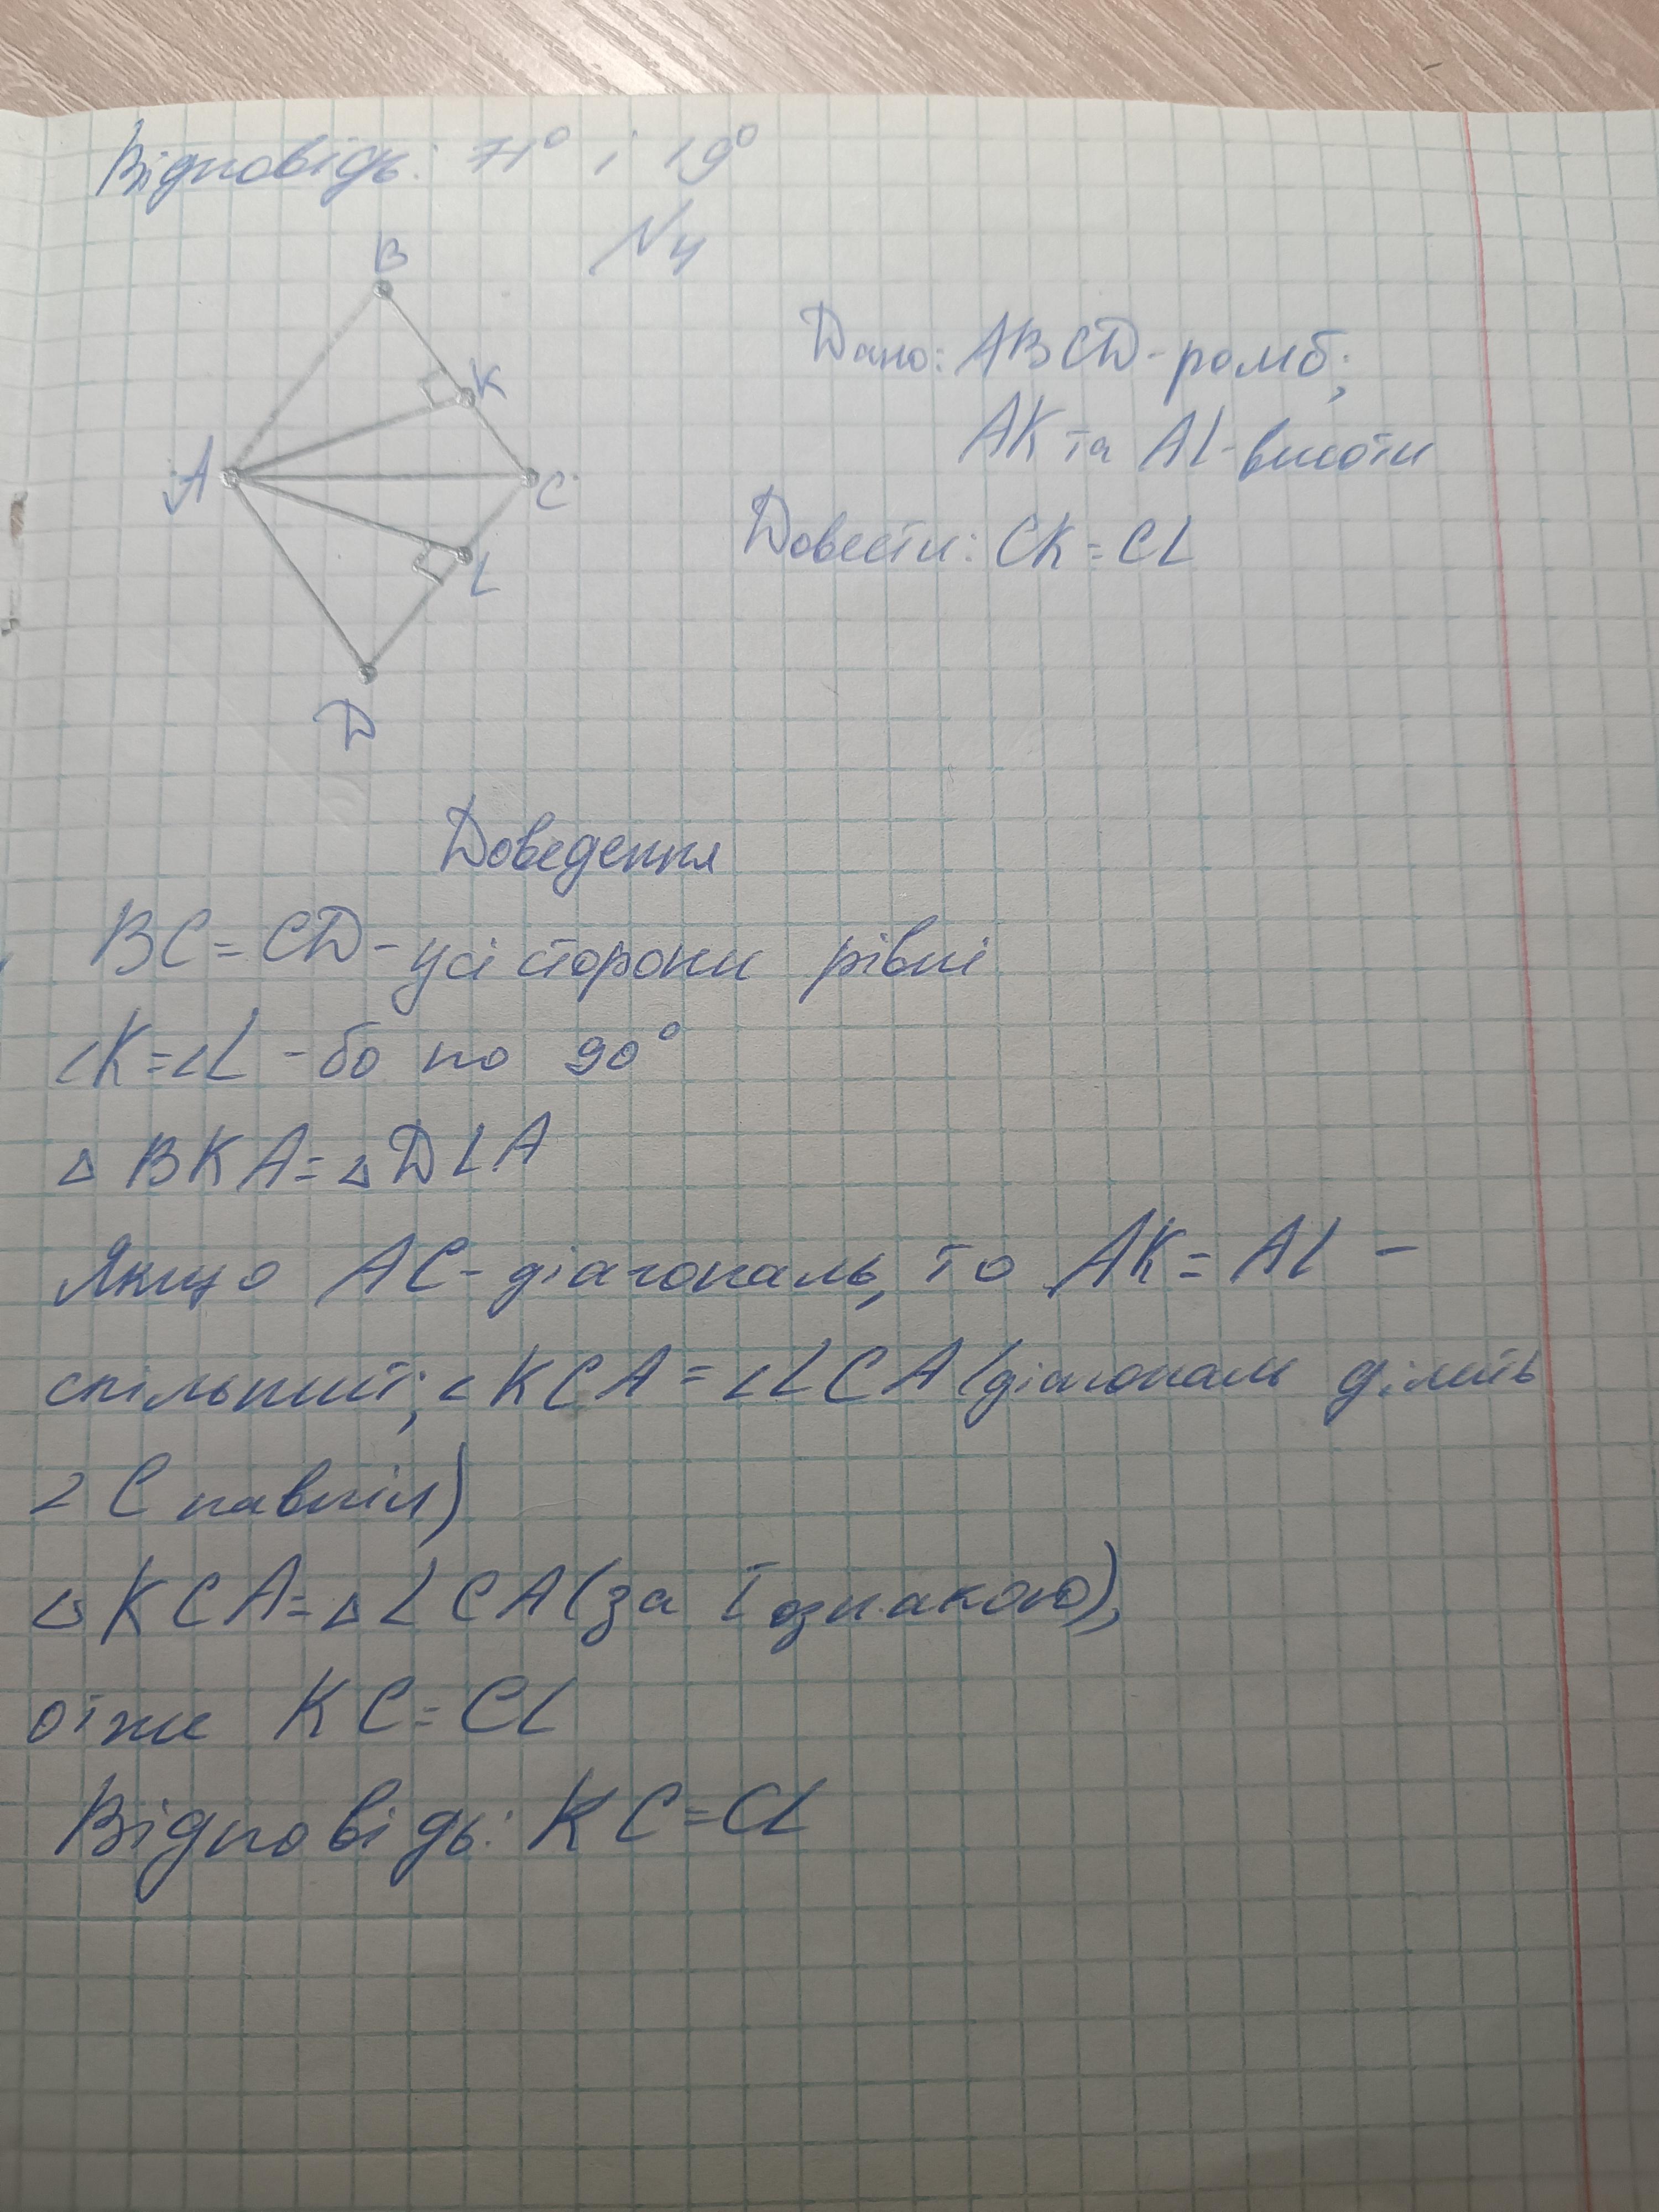 Відповідь: 71° і 19°
N4
B
K
A
C
L
D
Дано: ABCD - ромб;
AK та AL - висоти
Довести: CK = CL
Доведення
BC = CD - усі сторони рівні
∠K = ∠L - бо по 90°
△BKA = △DLA
Якщо AC - діагональ, то AK = AL -
спільний; ∠KCA = ∠LCA (діагональ ділить
∠C навпіл)
△KCA = △LCA (за I ознакою),
отже KC = CL
Відповідь: KC = CL